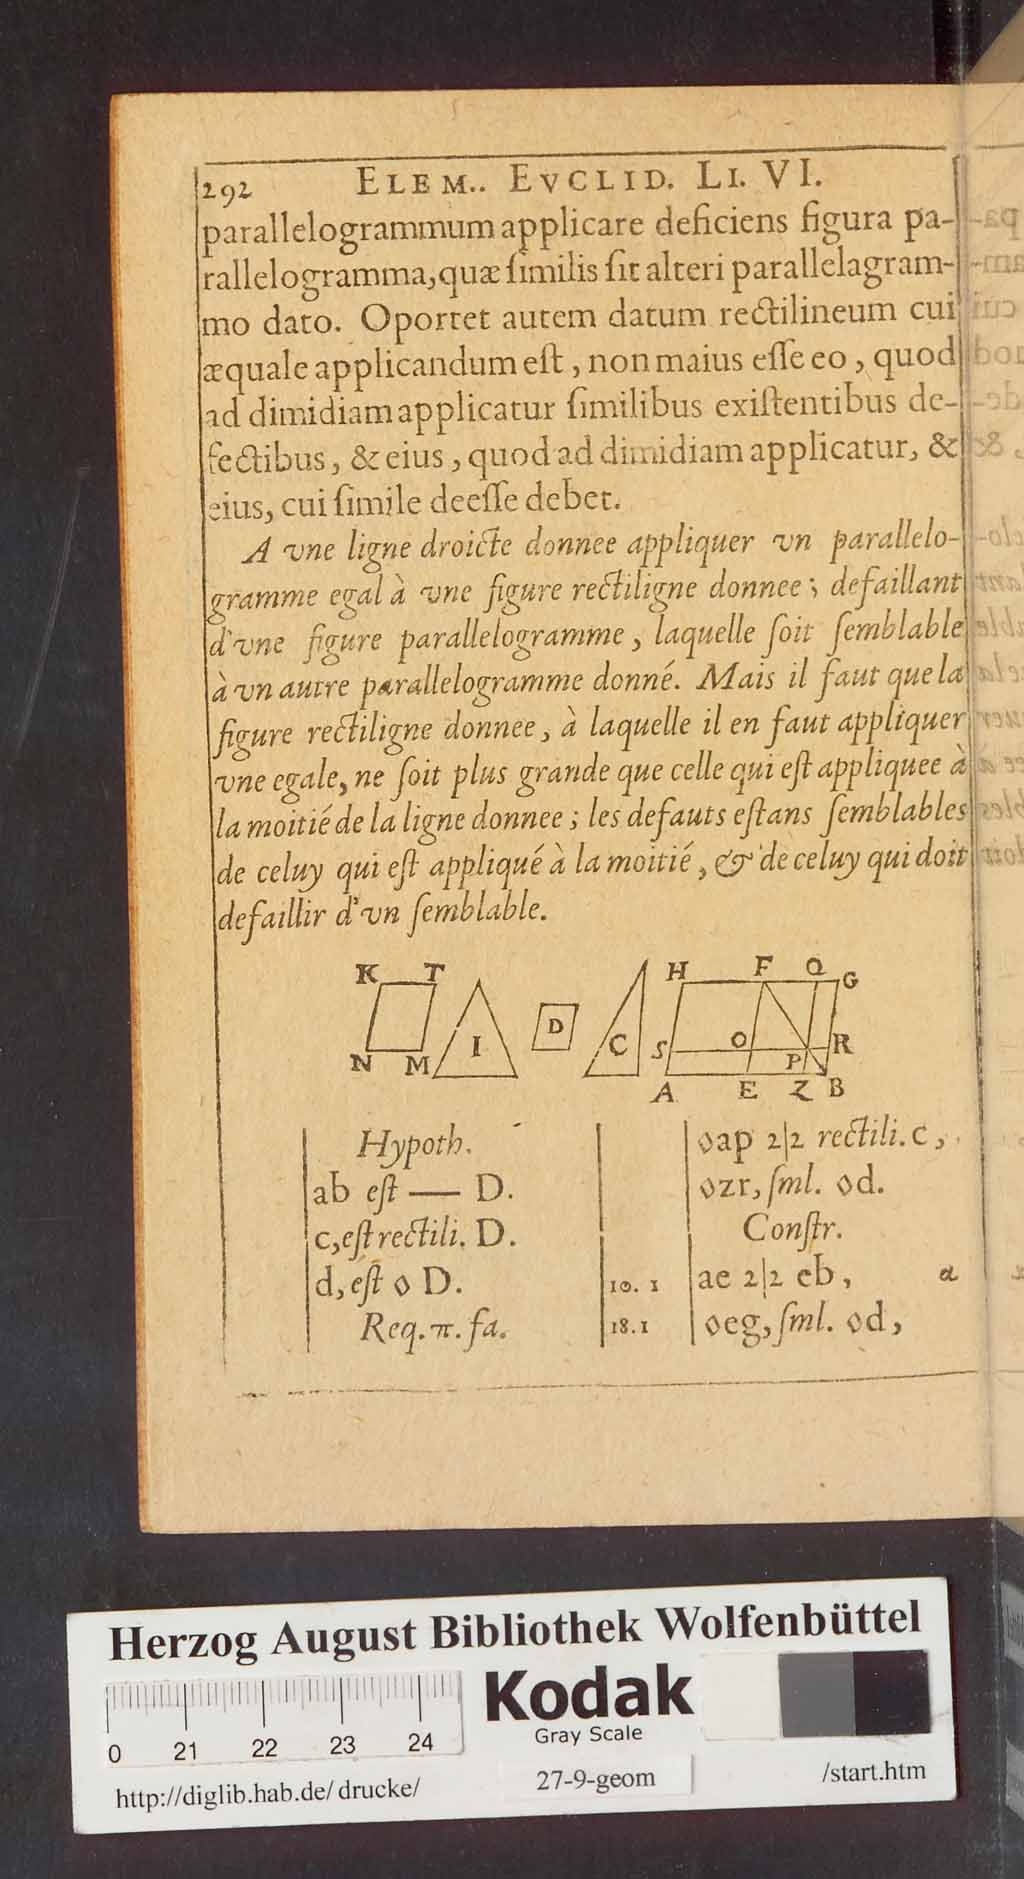 292 ELEM.. EVCLID. LI. VI.
parallelogrammum applicare deficiens figura pa-
rallelogramma, quæ ſimilis ſit alteri parallelagram-
mo dato. Oportet autem datum rectilineum cui
æquale applicandum eſt, non maius eſſe eo, quod
ad dimidiam applicatur ſimilibus exiſtentibus de-
fectibus, & eius, quod ad dimidiam applicatur, &
eius, cui ſimile deeſſe debet.
A vne ligne droicte donnee appliquer vn parallelo-
gramme egal à vne figure rectiligne donnee; defaillant
d'vne figure parallelogramme, laquelle ſoit ſemblable
à vn autre parallelogramme donné. Mais il faut que la
figure rectiligne donnee, à laquelle il en faut appliquer
vne egale, ne ſoit plus grande que celle qui eſt appliquee à
la moitié de la ligne donnee; les defauts eſtans ſemblables
de celuy qui eſt appliqué à la moitié, & de celuy qui doit
defaillir d'vn ſemblable.
K T H F Q G
I D C S O P R
N M A E Z B
Hypoth.
ab eſt — D.
c, eſt rectili. D.
d, eſt ◊ D.
Req. π. fa.
◊ap 2|2 rectili. c,
◊zr, ſml. ◊d.
Conſtr.
10. 1 ae 2|2 eb, a
18. 1 ◊eg, ſml. ◊d,
Herzog August Bibliothek Wolfenbüttel
Kodak
Gray Scale
0 21 22 23 24
http://diglib.hab.de/drucke/ 27-9-geom /start.htm